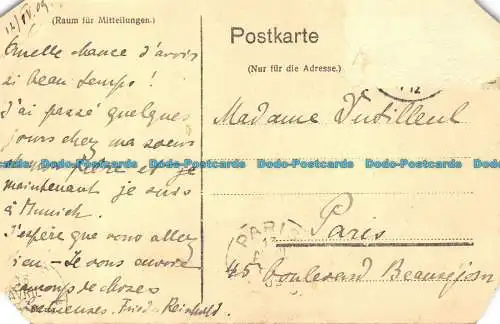 12/IV.09.
(Raum für Mitteilungen.)
Quelle chance d'avoir
si beau temps!
J'ai passé quelques
jours chez ma soeur
frère et je
maintenant je suis
à Munich.
J'espère que vous allez
bien - Je vous envoie
beaucoup de choses
Reinhold.
Postkarte
(Nur für die Adresse.)
Madame
Paris
45 boulevard Beauséjour
PARIS
Dodo-Postcards Dodo-Postcards Dodo-Postcards Dodo-Postcards